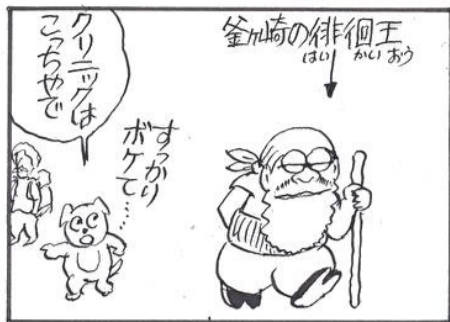 釜ヶ崎の徘徊王
はいかいおう
すっかり
ボケて…
クリニックは
こっちゃで